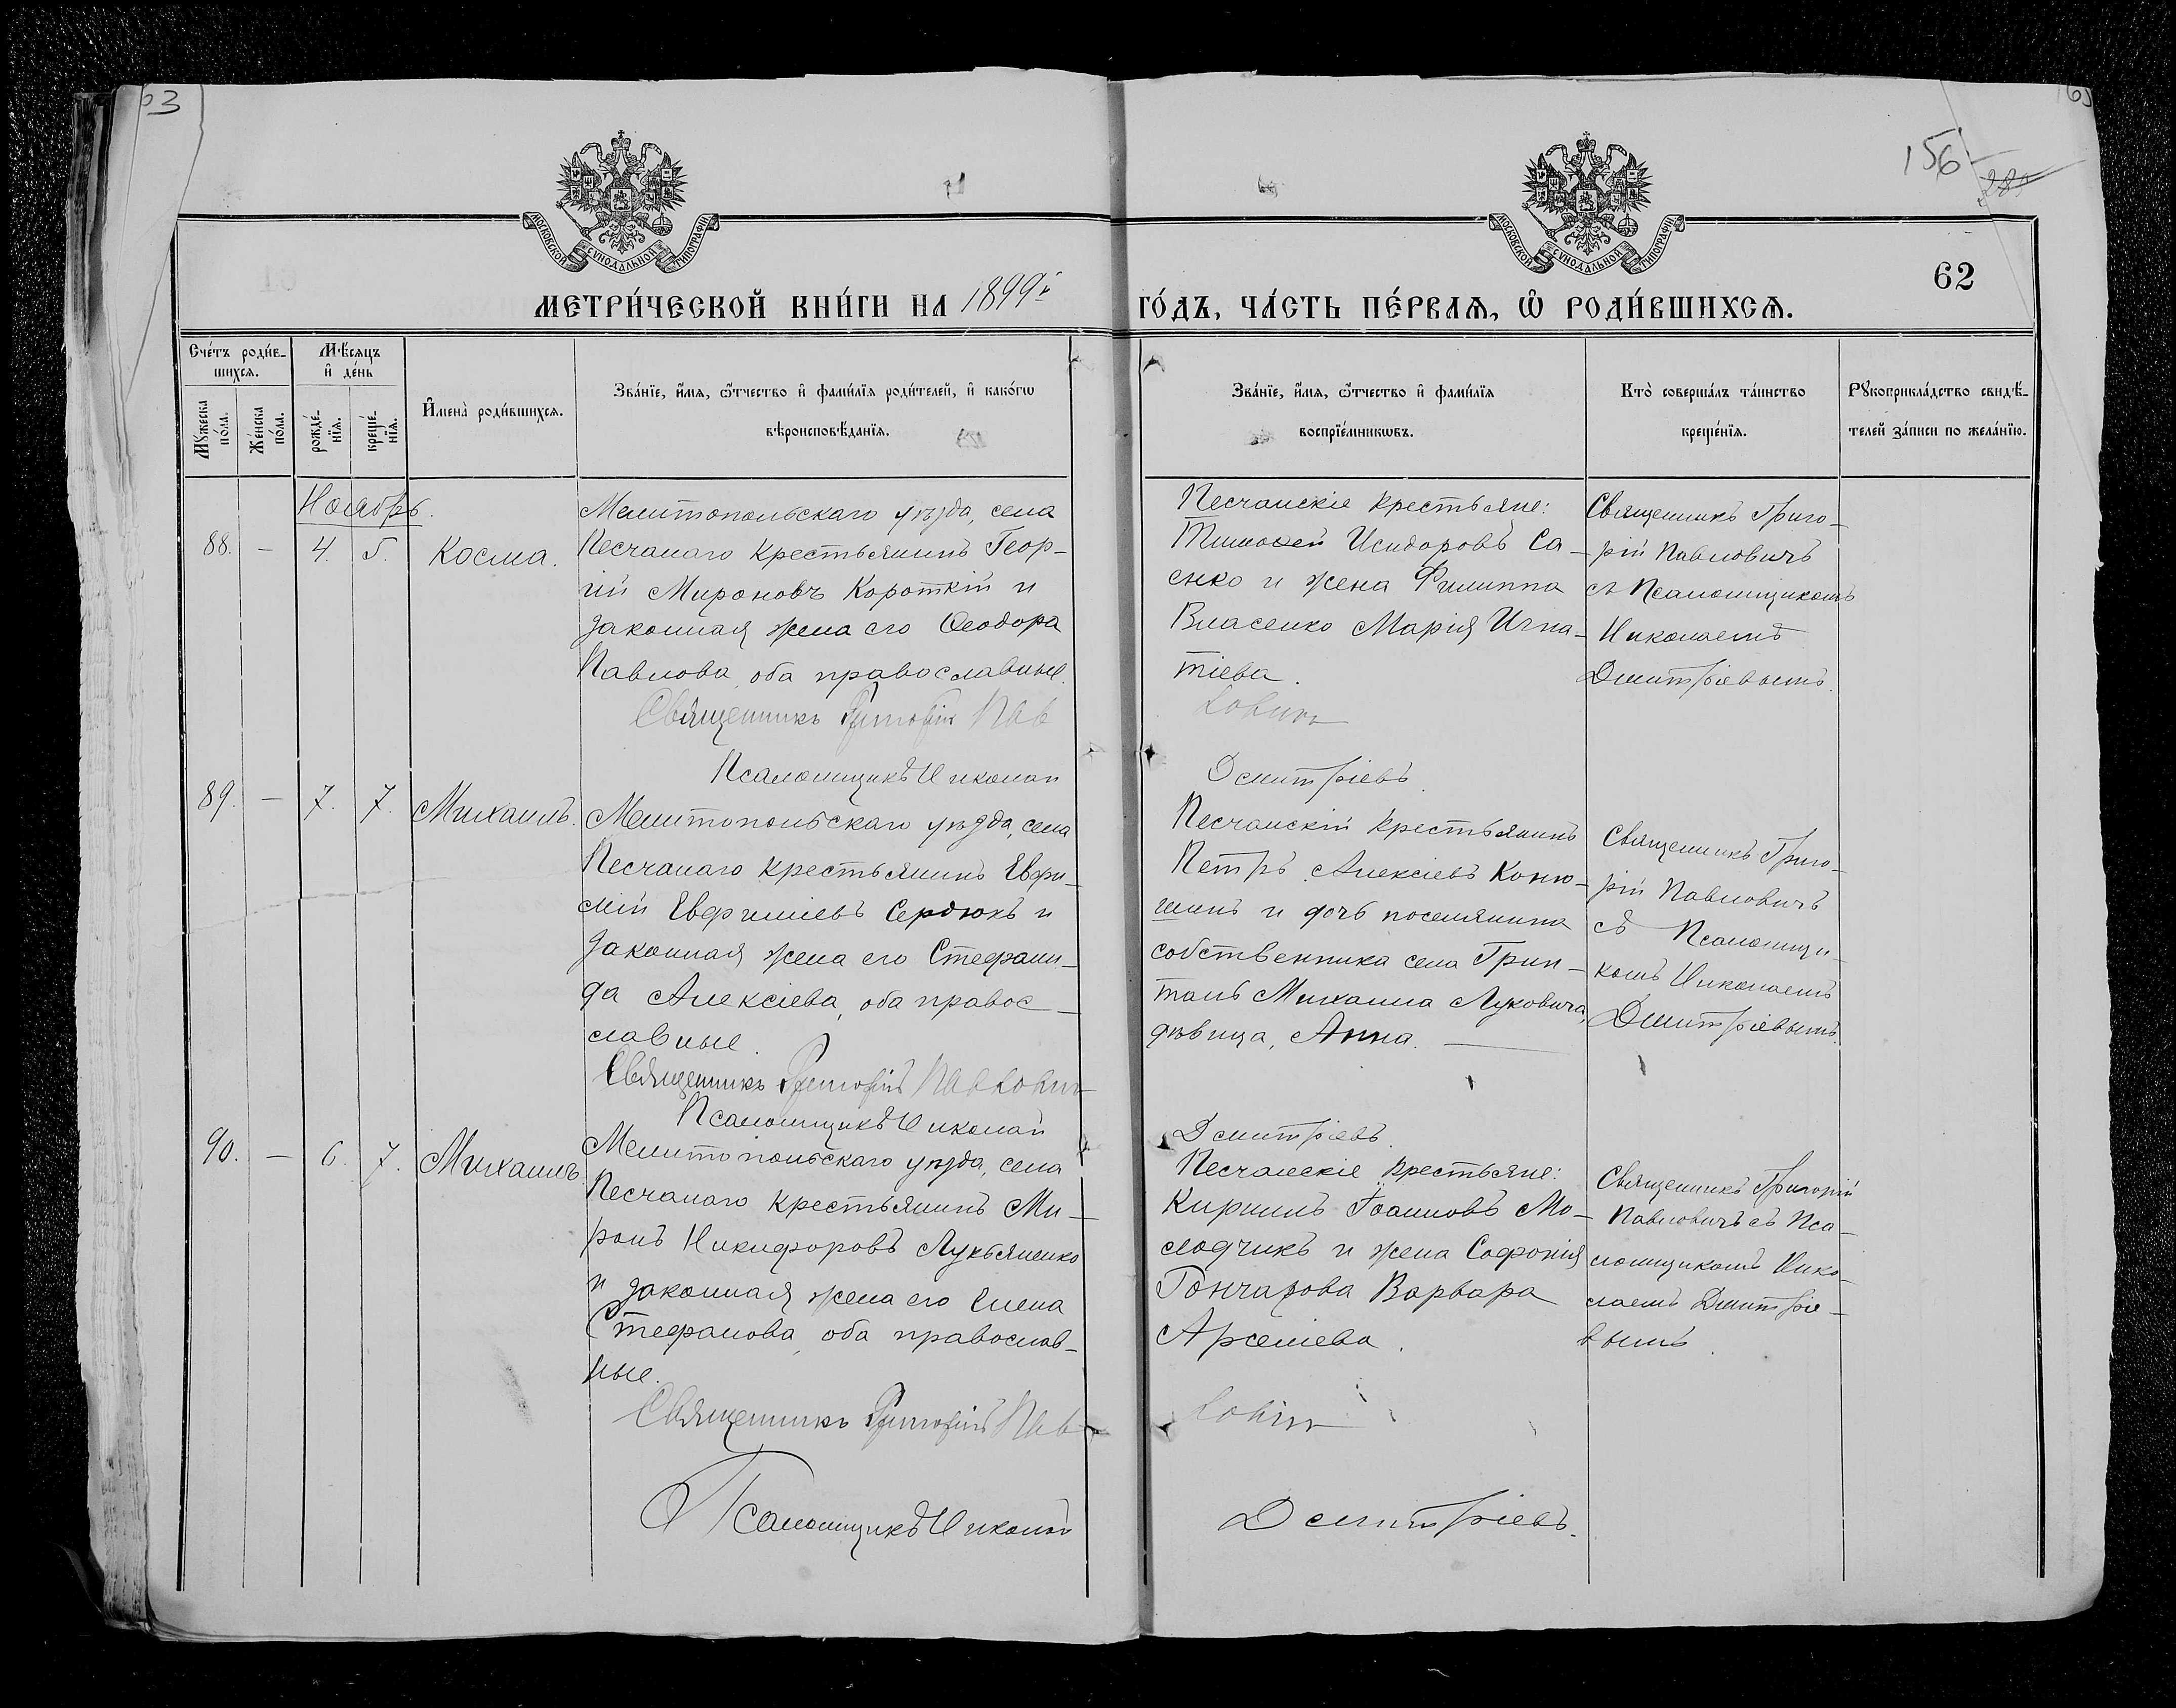 63
156
287
62
МОСКОВСКОЙ СѴНОДАЛЬНОЙ ТИПОГРАФІИ
МОСКОВСКОЙ СѴНОДАЛЬНОЙ ТИПОГРАФІИ
МЕТРИ́ЧЕСКОЙ КНИ́ГИ НА 1899й ГО́ДЪ, ЧА́СТЬ ПЕ́РВАѦ, Ѡ҆ РОДИ́ВШИХСѦ.
Сче́тъ роди́в-
шихсѧ.
Мѣ́сѧцъ
и҆ де́нь
Мꙋ́жеска
по́ла.
Же́нска
по́ла.
рожде́-
нїѧ.
креще́-
нїѧ.
И҆мена̀ роди́вшихсѧ.
Зва́нїе, и҆́мѧ, ѻ҆́тчество и҆ фамі́лїѧ роди́телей, и҆ како́гѡ
вѣроисповѣ́данїѧ.
Зва́нїе, и҆́мѧ, ѻ҆́тчество и҆ фамі́лїѧ
воспрїе́мникѡвъ.
Кто̀ соверша́лъ та́инство
креще́нїѧ.
Рꙋкоприкла́дство свидѣ́-
телей за́писи по жела́нїю.
Ноябрь.
88. — 4. 5. Косма.
Мелитопольскаго уѣзда, села
Песчанаго крестьянинъ Геор-
гій Мироновъ Короткій и
законная жена его Ѳеодора
Павлова, оба православные.
Священникъ Григорій Пав
ловичъ
Псаломщикъ Николай
Дмитріевъ.
Песчанскіе крестьяне:
Тимоѳей Исидоровъ Са-
енко и жена Филиппа
Власенко Марія Игна-
тіева.
Священникъ Григо-
рій Павловичъ
съ Псаломщикомъ
Николаемъ
Дмитріевымъ.
89. — 7. 7. Михаилъ.
Мелитопольскаго уѣзда, села
Песчанаго крестьянинъ Евфи-
мій Евфиміевъ Сердюкъ и
законная жена его Стефани-
да Алексіева, оба правос-
славные.
Священникъ Григорій Павловичъ
Псаломщикъ Николай
Дмитріевъ.
Песчанскій крестьянинъ
Петръ Алексіевъ Коню-
шинъ и дочь поселянина
собственника села Грин-
талъ Михаила Луковича,
дѣвица, Анна.
Священникъ Григо-
рій Павловичъ
съ Псаломщи-
комъ Николаемъ
Дмитріевымъ.
90. — 6. 7. Михаилъ
Мелитопольскаго уѣзда, села
Песчанаго крестьянинъ Ми-
ронъ Никифоровъ Лукьяненко
и законная жена его Елена
Стефанова, оба православ-
ные.
Священникъ Григорій Пав
ловичъ
Псаломщикъ Николай
Дмитріевъ.
Песчанскіе крестьяне:
Кириллъ Іоанновъ Мо-
лодчикъ и жена Софонія
Гончарова Варвара
Арсеніева.
Священникъ Григорій
Павловичъ съ Пса-
ломщикомъ Нико-
лаемъ Дмитріе-
вымъ.